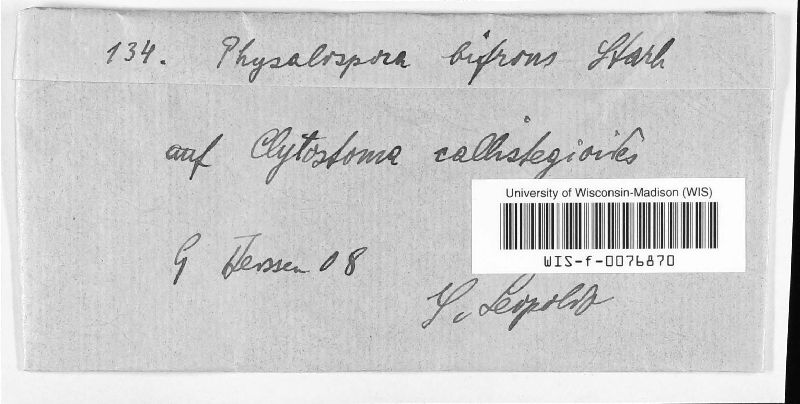 134. Physalospora bifrons Starb
auf Clytostoma callistegioides
University of Wisconsin-Madison (WIS)
WIS-f-0076870
G 08
S. Leopoldo